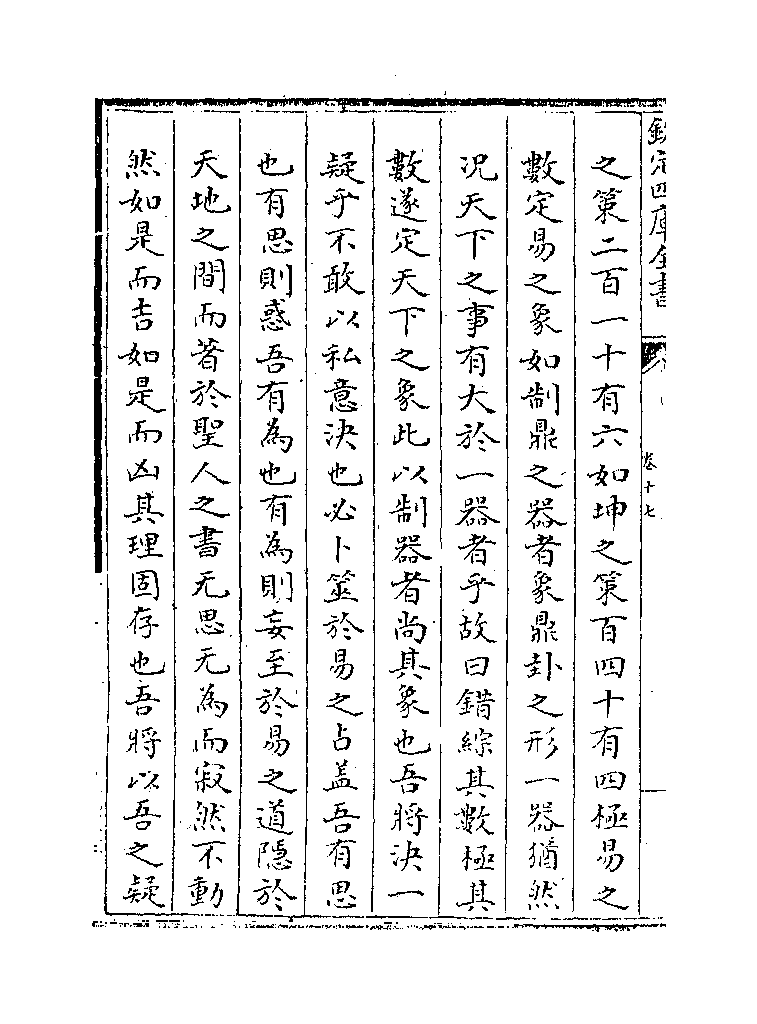 欽定四庫全書
卷十七
之策二百一十有六如坤之策百四十有四極易之
數定易之象如制鼎之器者象鼎卦之形一器猶然
况天下之事有大於一器者乎故曰錯綜其數極其
數遂定天下之象此以制器者尚其象也吾將決一
疑乎不敢以私意決也必卜筮於易之占盖吾有思
也有思則惑吾有為也有為則妄至於易之道隱於
天地之間而著於聖人之書无思无為而寂然不動
然如是而吉如是而凶其理固存也吾將以吾之疑